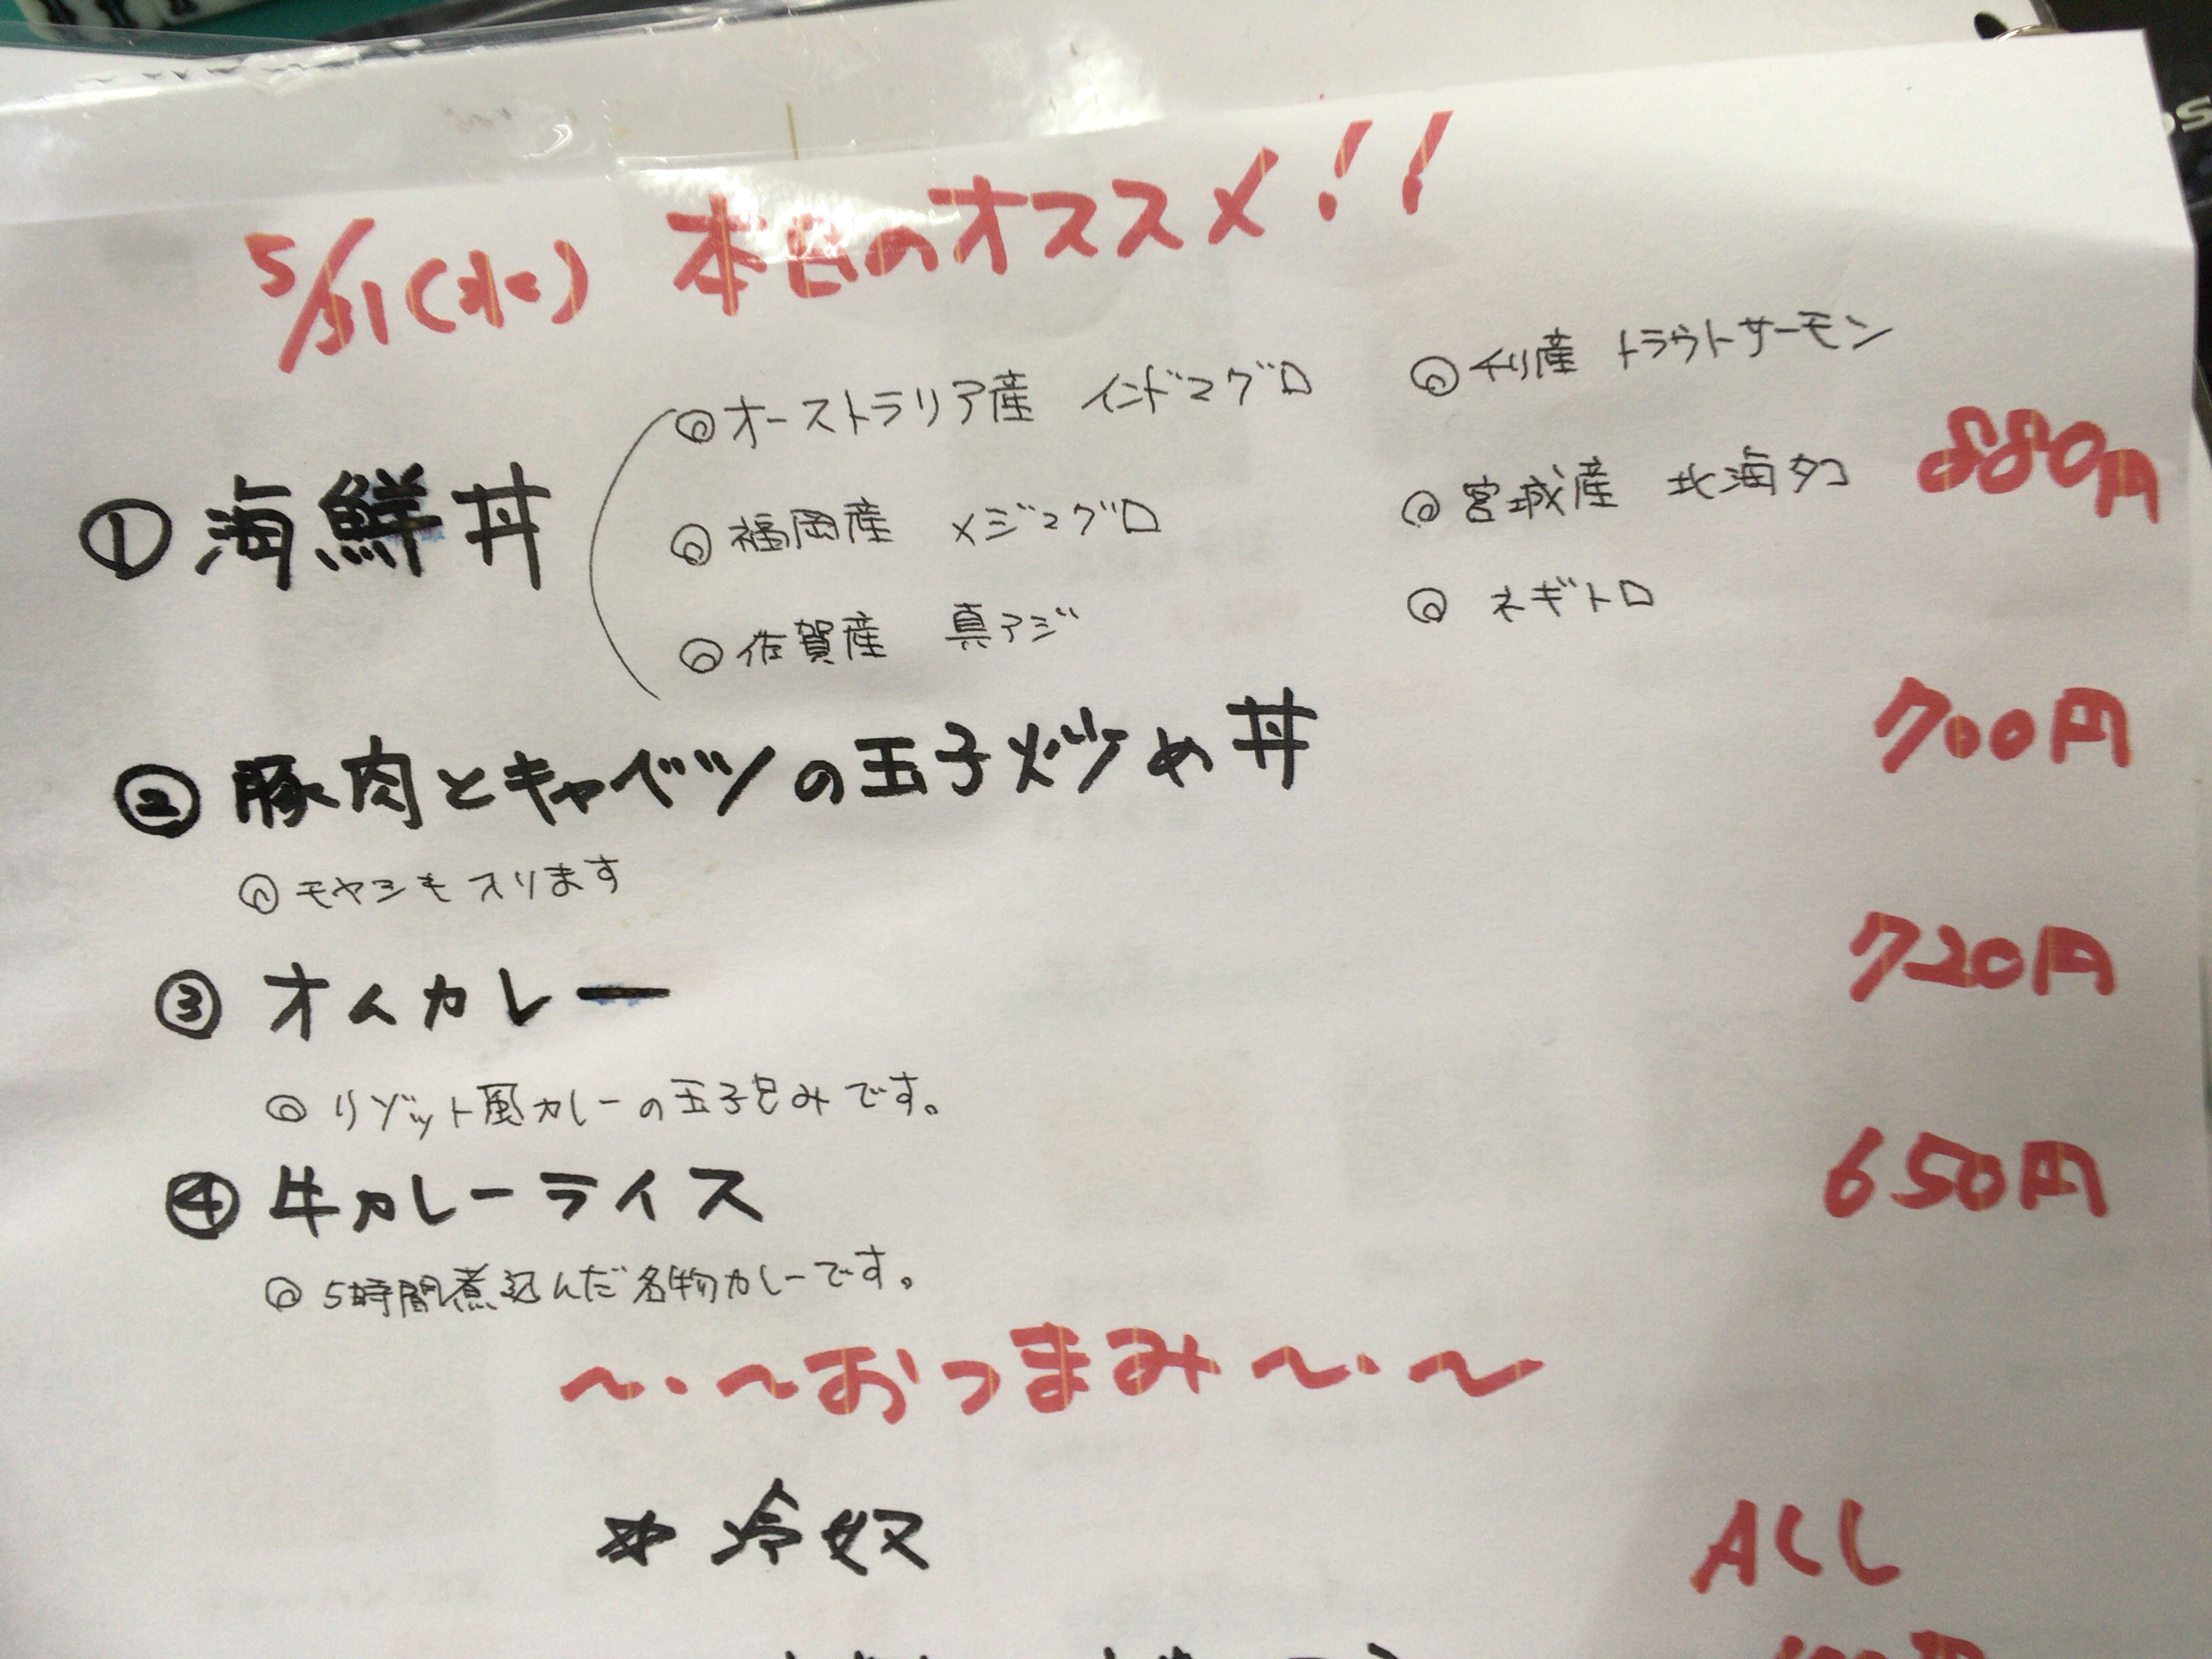 5/31(水) 本日のオススメ!!
◎オーストラリア産 インドマグロ ◎チリ産 トラウトサーモン
①海鮮丼 880円
◎福岡産 メジマグロ ◎宮城産 北海タコ
◎佐賀産 真アジ ◎ネギトロ
②豚肉とキャベツの玉子炒め丼 700円
◎モヤシも入ります
③オムカレー 720円
◎リゾット風カレーの玉子包みです。
④牛カレーライス 650円
◎5時間煮込んだ名物カレーです。
〜・〜おつまみ〜・〜
* 冷奴 ALL